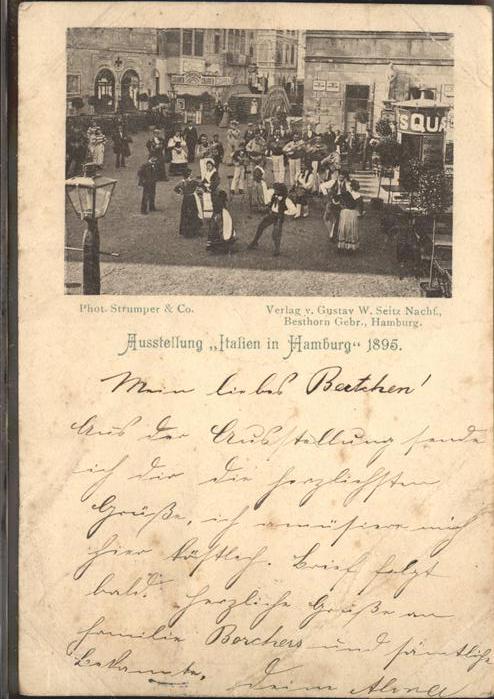 SQUA
Phot. Strumper & Co.
Verlag v. Gustav W. Seitz Nachf.,
Besthorn Gebr., Hamburg.
Ausstellung „Italien in Hamburg“ 1895.
Mein liebes Bertchen!
Aus der Ausstellung sende
ich dir die herzlichsten
Grüße, ich amüsiere mich
hier köstlich. Brief folgt
bald. Herzliche Grüße an
Familie Borchers und sämtliche
Bekannte. Deine